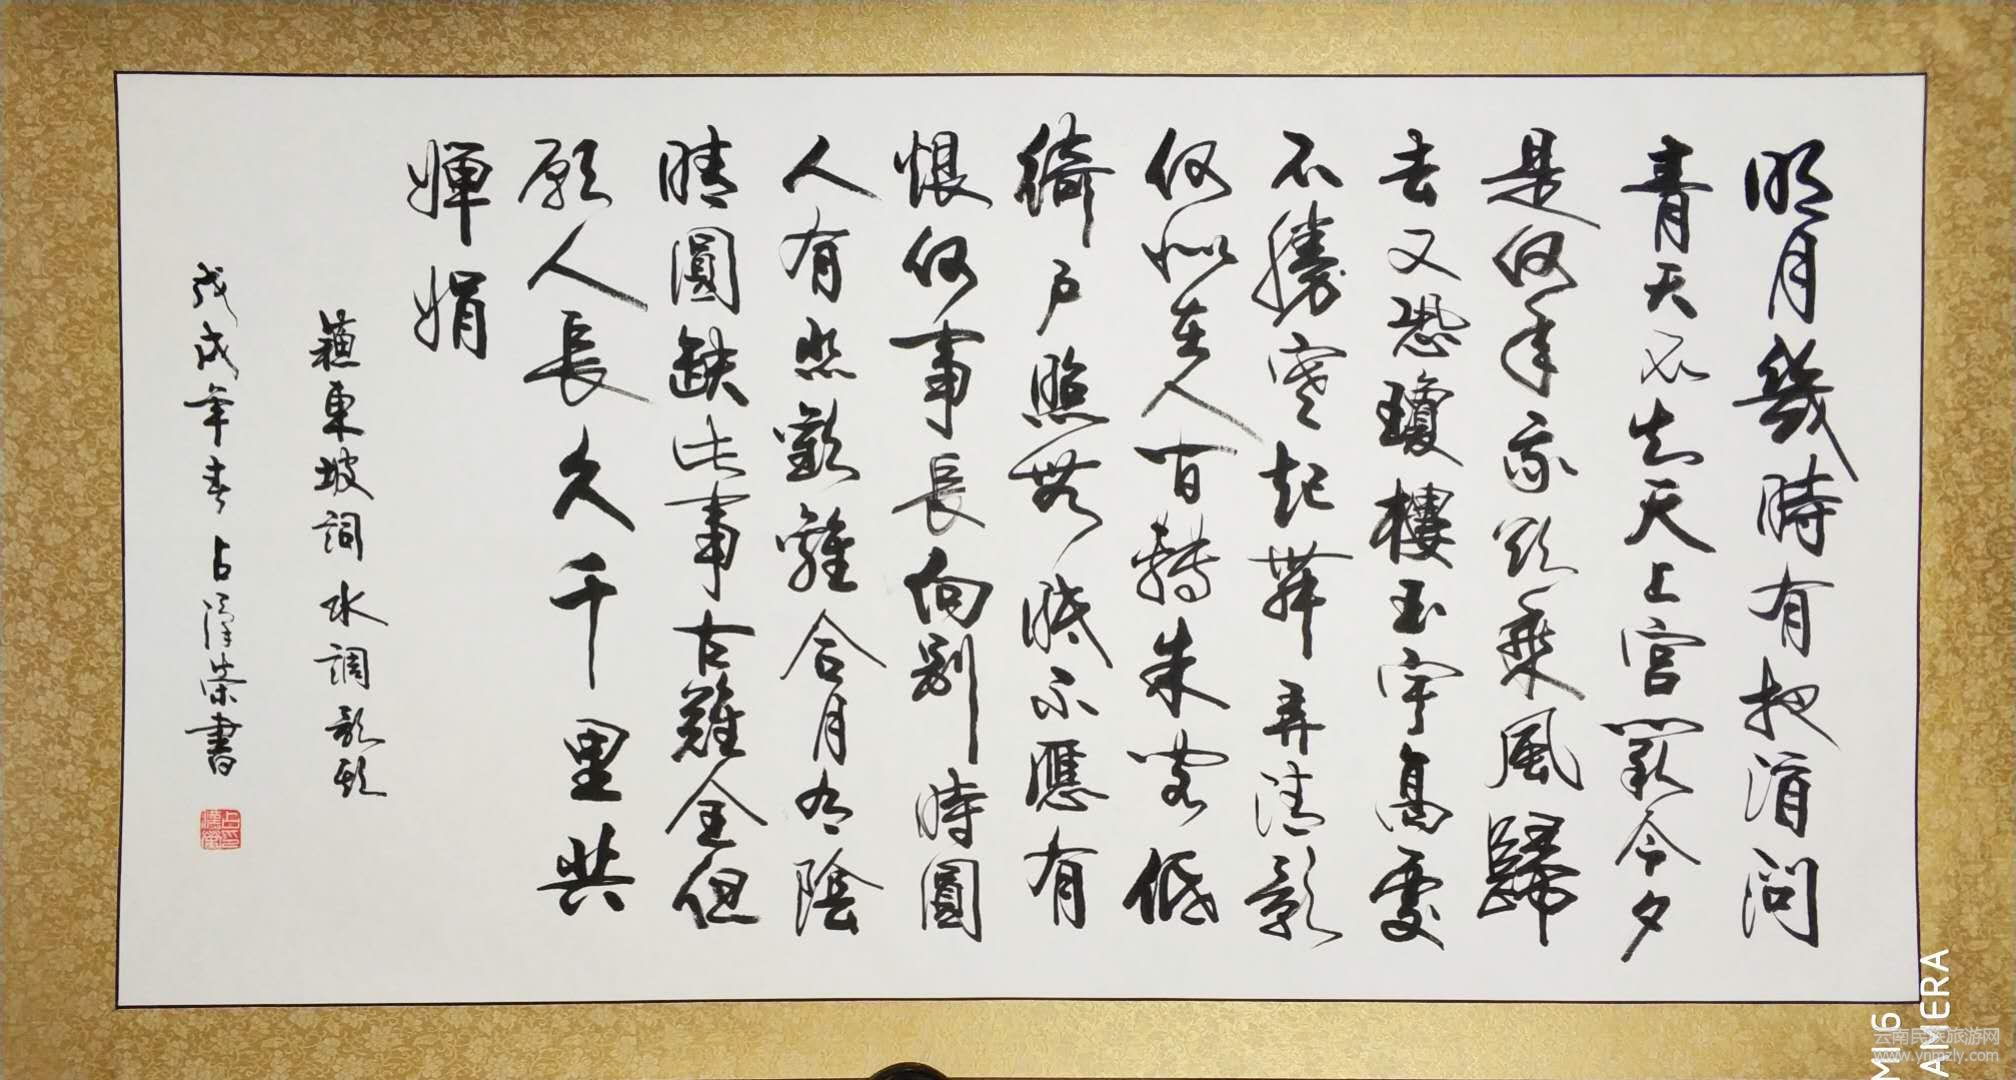 明月幾時有把酒問
青天不知天上宮闕今夕
是何年我欲乘風歸
去又恐瓊樓玉宇高處
不勝寒起舞弄清影
何似在人間轉朱閣低
綺戶照無眠不應有
恨何事長向別時圓
人有悲歡離合月有陰
晴圓缺此事古難全但
願人長久千里共
嬋娟
蘇東坡詞水調歌頭
戊戌年春占漢榮書
占漢榮印
MI 6
AMERA
云南民族旅游网
www.ynmzly.com